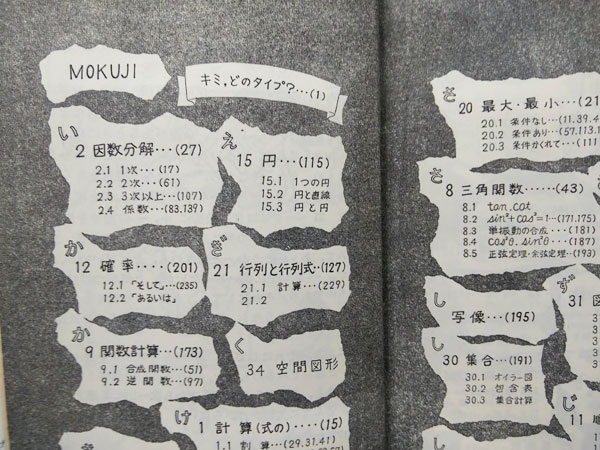 MOKUJI
キミ,どのタイプ?…(1)
い
2 因数分解…(27)
2.1 1次…(17)
2.2 2次…(61)
2.3 3次以上…(107)
2.4 係数…(83.139)
え
15 円…(115)
15.1 1つの円
15.2 円と直線
15.3 円と円
か
12 確率‥‥(201)
12.1 「そして」…(235)
12.2 「あるいは」
ぎ
21 行列と行列式‥(127)
21.1 計算…(229)
21.2
か
9 関数計算…(173)
9.1 合成関数…(51)
9.2 逆関数…(97)
く
34 空間図形
け
1 計算(式の)‥‥(15)
1.1 割算…(29.31.41)
さ
20 最大・最小…(21
20.1 条件なし…(11.39.4
20.2 条件あり…(57.113.1
20.3 条件かくれて…(111
さ
8 三角関数……(43)
8.1 tan.cot
8.2 sin²+cos²=1…(171.175)
8.3 単振動の合成…(181)
8.4 cos²θ.sin²θ…(187)
8.5 正弦定理・余弦定理‥(193)
し
写像…(195)
ず
31 図
し
30 集合…(191)
30.1 オイラー図
30.2 包含表
30.3 集合計算
じ
11
し